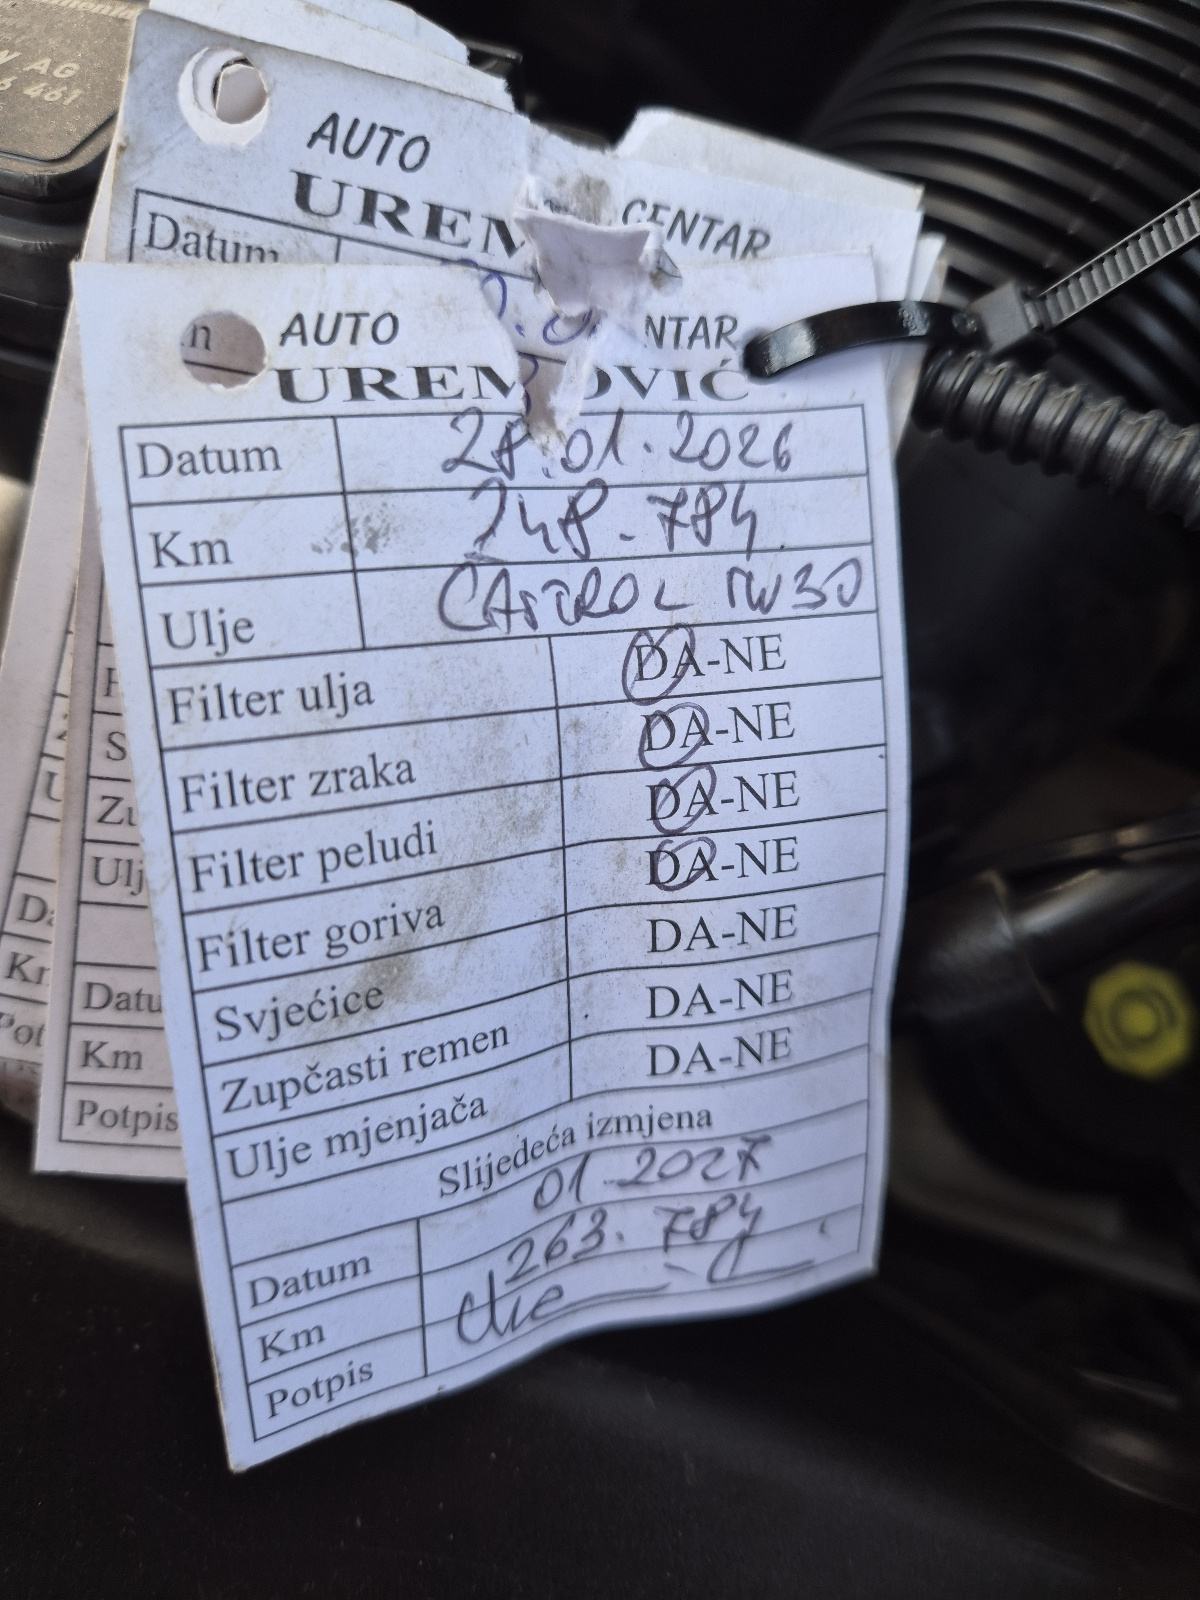 W AG
6 461
AUTO CENTAR
UREM
Datum
AUTO NTAR
UREMOVIĆ
Datum 28.01.2026
Km 248.784
Ulje CASTROL 5W30
Filter ulja DA-NE
Filter zraka DA-NE
Filter peludi DA-NE
Filter goriva DA-NE
Svjećice DA-NE
Zupčasti remen DA-NE
Ulje mjenjača DA-NE
Slijedeća izmjena
Datum 01.2027
Km 263.784
Potpis
F
S
Zu
Ulj
Datu
Km
Potpis
U
Da
Kr
Pot